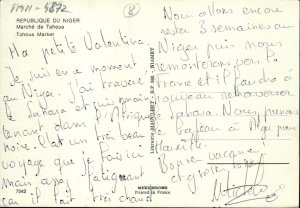 8
REPUBLIQUE DU NIGER
Marché de Tahoua
Tahoua Market
Ma petite Valentine
Je suis en ce moment
au Niger. J'ai traversé
le Sahara et suis main
tenant dans l'Afrique
noire. C'est un très beau
voyage que je fais ici
mais assez fatigant
car il fait très chaud
7042
MEXICHROME
Printed in France
Librairie MARCHET - B.P. 868 - NIAMEY
Nous allons encore
rester 3 semaines au
Niger puis nous
remonterons vers la
France et il faudra à
nouveau retraverser
le Sahara. Nous prenons
le bateau à Alger pour
Marseille.
Bonnes vacances
et grosses bises